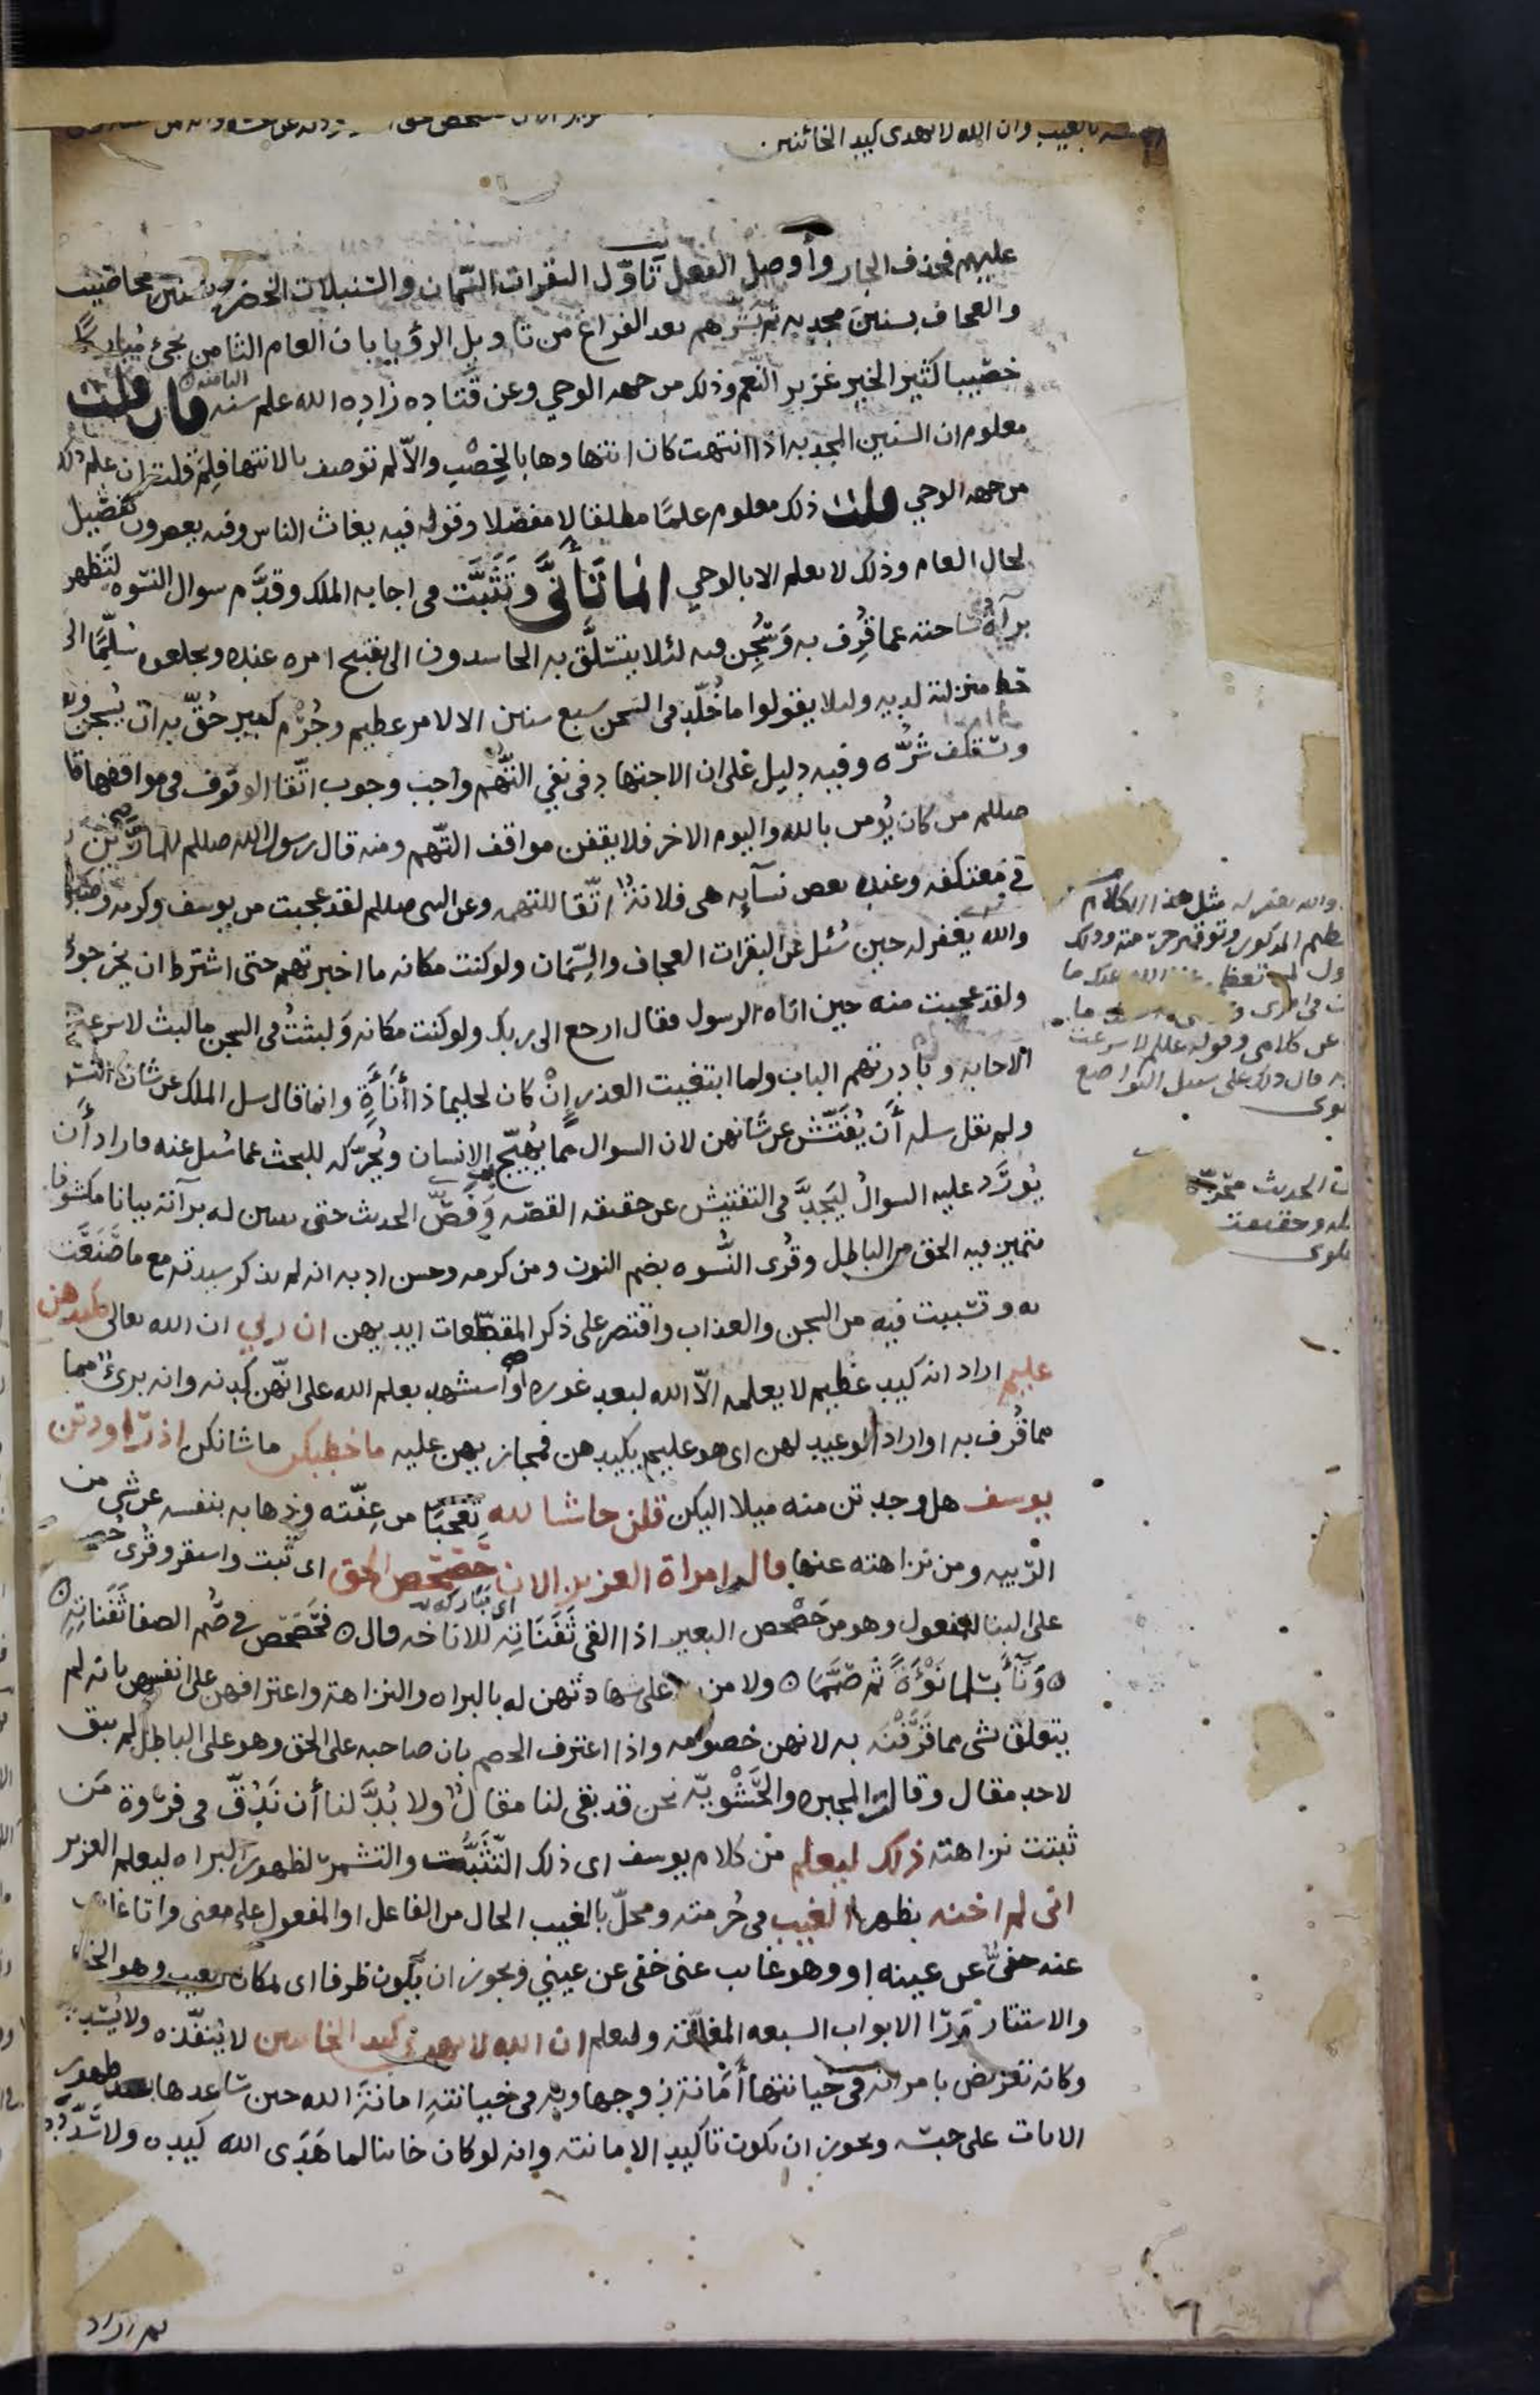 بالغيب وان الله لا يهدى كيد الخائنين
عليهم فحذف الجار وأوصل الفعل تأوّل البقرات السّمان والسّنبلات الخضر بسنين مخاصيب
والعجاف بسنين مجدبه ثم بَشّرهم بعد الفراغ من تاويل الرؤيا بان العام الثامن يجئ مُباركًا
خصّيبا كثير الخير غزير النّعم وذلك من جهه الوحي وعن قَتاده زاده الله علم سنه فان قلت
معلوم ان السنين المجدبه اذا انتهت كان انتهاوها بالخِصْب والاّ لم توصف بالانتها فلِمَ قلت ان علم ذلك
من جهه الوحي قلت ذلك معلوم علمًا مطلقا لا مفصّلا وقوله فيه يغاث الناس وفيه يعصرون تفصيل
لحال العام وذلك لا يعلم الا بالوحي انما تَأَنَّى وتَثَبَّت في اجابه الملك وقدَّم سوال النسوه لتظهر
برآةُ ساحته عما قُرِف به وسُجِن فيه لئلا يتسلَّق به الحاسدون الى تقبيح امره عنده ويجعلوه سُلّمًا الى
حط منزلته لديه ولئلا يقولوا ما خُلّد في السجن سبع سنين الا لامر عظيم وجُرْم كبير حُقّ به ان يُسجن
وتستكف شَرّه وفيه دليل على ان الاجتهاد في نفي التُّهم واجب وجوب اتّقا الوقوف في مواقفها قا
صللم من كان يُومن بالله واليوم الاخر فلا يقفن مواقف التّهم ومنه قال رسول الله صللم للمارّين
في مُعتكفه وعنده بعض نسآئه هى فلانةٌ اتّقا للتهمه وعن النبى صللم لقد عجبت من يوسف وكرمه وصبره
والله يغفر له حين سُئل عن البقرات العجاف والسِّمان ولو كنت مكانه ما اخبرتهم حتى اشترط ان يخرجونى
ولقد عجبت منه حين اتاه الرسول فقال ارجع الى ربك ولو كنت مكانه ولَبثتُ فى السجن ما لبث لاسرعت
الاجابه وبادرتهم الباب ولما ابتغيت العذر اِنْ كان لحليما ذا أَنَاةٍ وانما قال سل الملك عن شان النسوه
ولم يقل سله أَن يُفتّش عن شانهن لان السوال مما يُهيّج الانسان ويُحرّكه للبحث عما سُئل عنه فاراد أَن
يُورَد عليه السوالُ ليَجِدَّ فى التفتيش عن حقيقه القصّه وفَصّ الحديث حتى يتبين له برآته بيانا مكشوفا
يتميز فيه الحق من الباطل وقُرى النُّسوه بضم النون ومن كرمه وحسن ادبه انه لم يذكر سيدته مع ما صَنَعَت
به وتسببت فيه من السجن والعذاب واقتصر على ذكر المقطّعات ايديهن ان ربي ان الله تعالى بكيدهن
عليم اراد انه كيد عظيم لا يعلمه الاّ الله لبعد غوره أو استشهد بعلم الله على انّهن كِدنه وانه برئٌ
مما قُرف به او اراد الوعيد لهن اى هو عليم بكيدهن فمجازيهن عليه ما خطبكن ما شانكن اذ راودتن
يوسف هل وجدتن منه ميلا اليكن قلن حاشا لله تعجّبًا من عِفّته وذهابه بنفسه عن شي من
الرّيبه ومن نزاهته عنها قالت امراة العزيز الان حَصْحَص الحق اى ثَبت واستقر وقُرى حُصحص
على البنا للمفعول وهو من حَصْحص البعير اذا القى ثَفَنَاتِه للاناخه قال فحَصْحَص في صُم الصفا ثَفَنَاتِه
ونَاءَ بسلما نَوْءَةً ثم صَمّمَا ولا مزيد على شهادتهن له بالبراه والنزاهه واعترافهن على انفسهن بانه لم
يتعلق بشى مما قَرَفْنَه به لانهن خصومه واذا اعترف الخصم بان صاحبه على الحق وهو على الباطل لم يبق
لاحد مقال وقالت المجبره والحَشْويّه نحن قد بقى لنا مقالٌ ولا بُدَّ لنا أَن نَدُقّ فى فروة مَن
ثبتت نزاهته ذلك ليعلم من كلام يوسف اى ذلك التّثَبُّت والتشمر لظهور البراه ليعلم العزيز
انى لم اخنه بظهر الغيب فى حُرمته ومحلّ بالغيب الحال من الفاعل او المفعول على معنى وانا غائب
عنه خفىٌّ عن عينه او وهو غايب عنى خفى عن عيني ويجوز ان يكون ظرفا اى لمكان الغيب وهو الخفا
والاستتار ورآ الابواب السبعه المغلقه وليعلم ان الله لا يهدى كيد الخاينين لا يُنفّذه ولا يُسَدّده
وكانه تعريض بامراته فى خيانتها أَمانة زوجها وبه فى خيانتهِ امانةَ الله حين ساعدها بعد ظهور
الايات على حبسه ويجوز ان يكون تاكيد الامانته وانه لو كان خاينا لما هَدَى الله كيده ولا سَدّده
والله يغفر له مثل هذا الكلام
المذكور وتوقير حرمته وذلك
عن كلامى وقوله عللم لاسرعت
قال ذلك على سبيل التواضع
الحديث